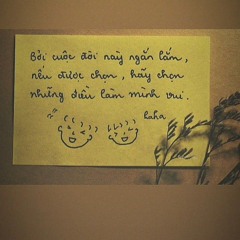 Bởi cuộc đời này ngắn lắm,
nếu được chọn, hãy chọn
những điều làm mình vui.
haha